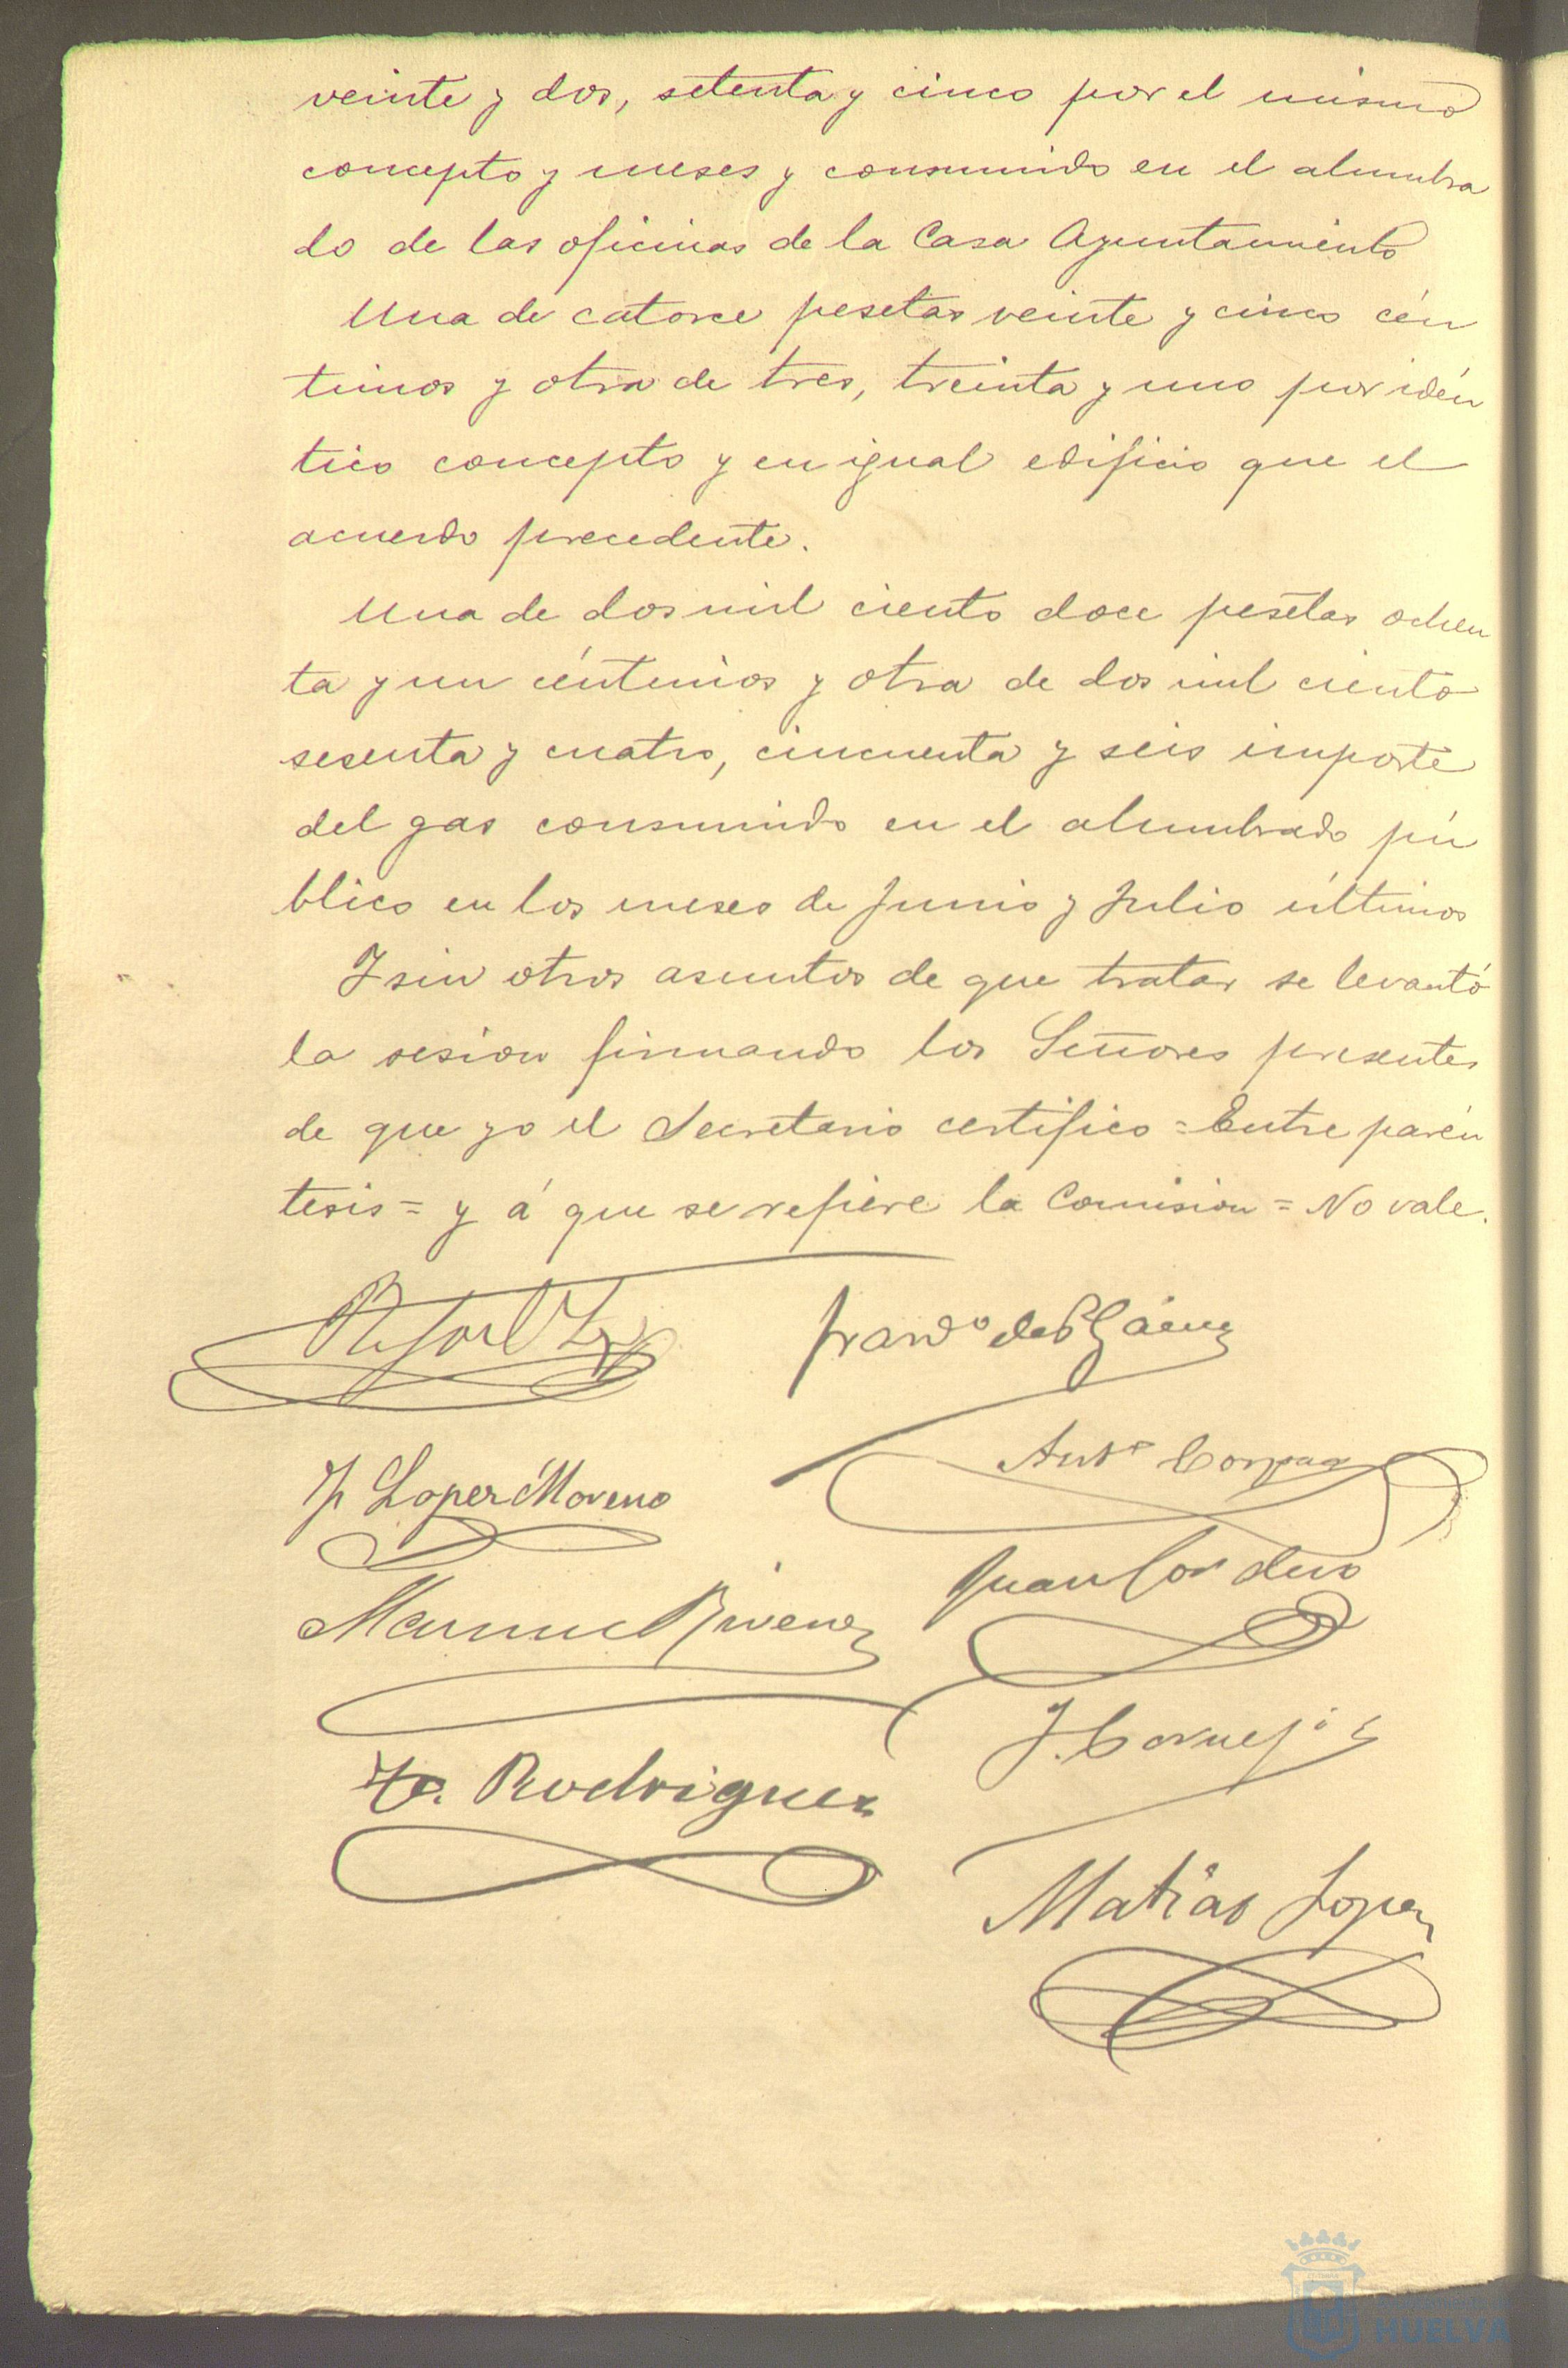 veinte y dos, setenta y cinco por el mismo
concepto y meses y consumido en el alumbra
do de las oficinas de la Casa Ayuntamiento
Una de catorce pesetas veinte y cinco cén
timos y otra de tres, treinta y uno por idén
tico concepto y en igual edificio que el
acuerdo precedente.
Una de dos mil ciento doce pesetas ochen
ta y un céntimos y otra de dos mil ciento
sesenta y cuatro, cincuenta y seis importe
del gas consumido en el alumbrado pú
blico en los meses de Junio y Julio últimos
Y sin otros asuntos de que tratar se levantó
la sesion firmando los Señores presentes
de que yo el Secretario certifico = Entre parén
tesis = y á que se refiere la Comision = No vale.
Anto
J. Lopez Moreno
Juan Cordero
Manuel
J. Cornejo
Rodriguez
Matias Lopez
HUELVA